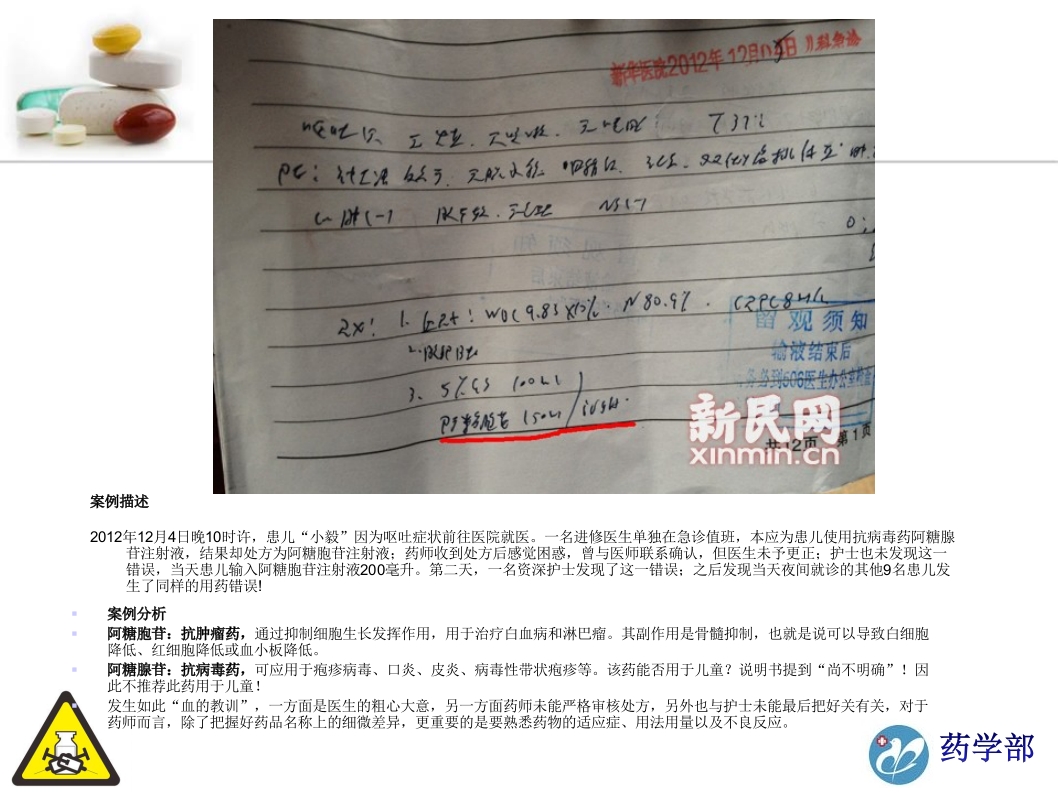 新华医院2012年12月05日 儿科急诊
T 37℃
PE：
NS(-)
2x: 1. WBC 9.83 N 80.9% CRP<8
留 观 须 知
输液结束后
3. 5% GS 100ml
阿糖胞苷 150ml / ivgtt
新民网
xinmin.cn
共12页 第1页
案例描述
2012年12月4日晚10时许，患儿“小毅”因为呕吐症状前往医院就医。一名进修医生单独在急诊值班，本应为患儿使用抗病毒药阿糖腺
苷注射液，结果却处方为阿糖胞苷注射液；药师收到处方后感觉困惑，曾与医师联系确认，但医生未予更正；护士也未发现这一
错误，当天患儿输入阿糖胞苷注射液200毫升。第二天，一名资深护士发现了这一错误；之后发现当天夜间就诊的其他9名患儿发
生了同样的用药错误!
案例分析
阿糖胞苷：抗肿瘤药，通过抑制细胞生长发挥作用，用于治疗白血病和淋巴瘤。其副作用是骨髓抑制，也就是说可以导致白细胞
降低、红细胞降低或血小板降低。
阿糖腺苷：抗病毒药，可应用于疱疹病毒、口炎、皮炎、病毒性带状疱疹等。该药能否用于儿童？说明书提到“尚不明确”！因
此不推荐此药用于儿童！
发生如此“血的教训”，一方面是医生的粗心大意，另一方面药师未能严格审核处方，另外也与护士未能最后把好关有关，对于
药师而言，除了把握好药品名称上的细微差异，更重要的是要熟悉药物的适应症、用法用量以及不良反应。
药学部